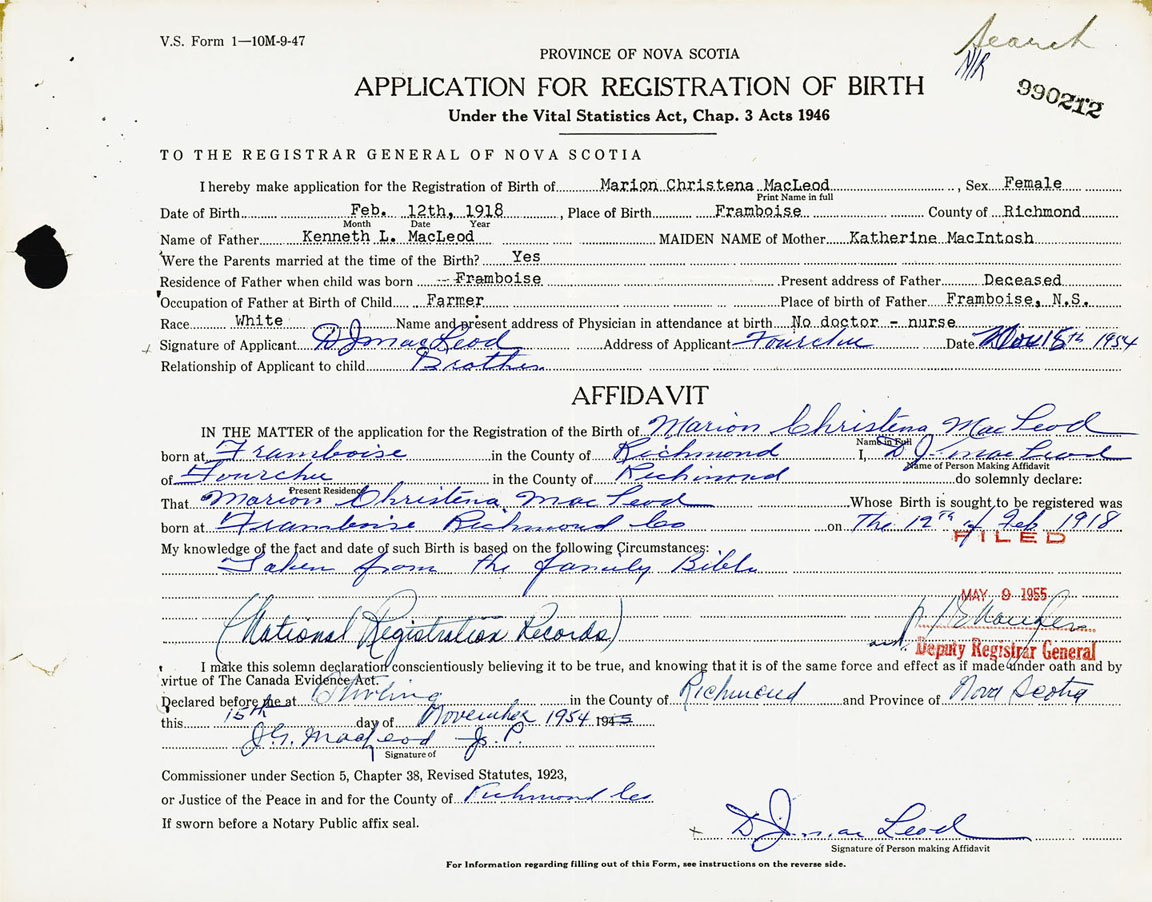 V.S. Form 1—10M-9-47
Search
N/R
990212
PROVINCE OF NOVA SCOTIA
APPLICATION FOR REGISTRATION OF BIRTH
Under the Vital Statistics Act, Chap. 3 Acts 1946
TO THE REGISTRAR GENERAL OF NOVA SCOTIA
I hereby make application for the Registration of Birth of Marion Christena MacLeod, Sex Female
Print Name in full
Date of Birth Feb. 12th, 1918, Place of Birth Framboise County of Richmond
Month Date Year
Name of Father Kenneth L. MacLeod MAIDEN NAME of Mother Katherine MacIntosh
Were the Parents married at the time of the Birth? Yes
Residence of Father when child was born -- Framboise Present address of Father Deceased
Occupation of Father at Birth of Child Farmer Place of birth of Father Framboise, N.S.
Race White Name and present address of Physician in attendance at birth No doctor - nurse
Signature of Applicant D J MacLeod Address of Applicant Fourchu Date Nov 15th 1954
Relationship of Applicant to child Brother
AFFIDAVIT
IN THE MATTER of the application for the Registration of the Birth of Marion Christena MacLeod
Name in Full
born at Framboise in the County of Richmond I, D J. MacLeod
Name of Person Making Affidavit
of Fourchu in the County of Richmond do solemnly declare:
Present Residence
That Marion Christena MacLeod Whose Birth is sought to be registered was
born at Framboise Richmond Co on The 12th of Feb 1918
FILED
My knowledge of the fact and date of such Birth is based on the following Circumstances:
Taken from the family Bible
MAY 9 1955
(National Registration Records)
Deputy Registrar General
I make this solemn declaration conscientiously believing it to be true, and knowing that it is of the same force and effect as if made under oath and by
virtue of The Canada Evidence Act.
Declared before me at Stirling in the County of Richmond and Province of Nova Scotia
this 15th day of November 1954 1945
J.G. MacLeod J.P.
Signature of
Commissioner under Section 5, Chapter 38, Revised Statutes, 1923,
or Justice of the Peace in and for the County of Richmond Co
If sworn before a Notary Public affix seal.
x D J MacLeod
Signature of Person making Affidavit
For Information regarding filling out of this Form, see instructions on the reverse side.